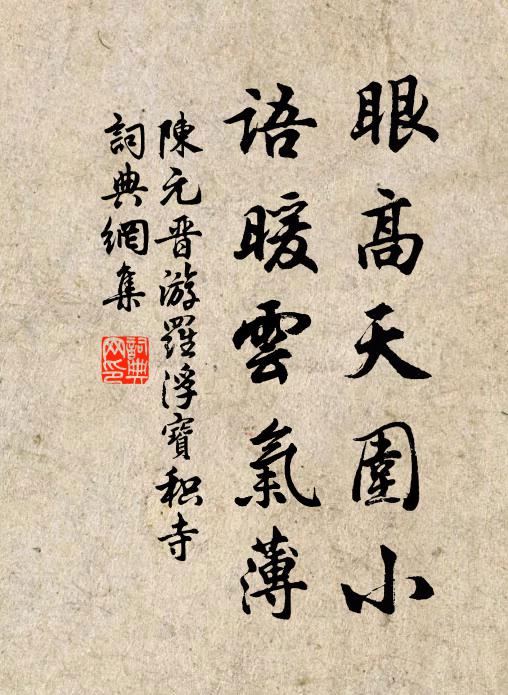 眼高天圍小
語暖雲氣薄
陳元晋游羅浮寶積寺
詞典網集
詞典網印